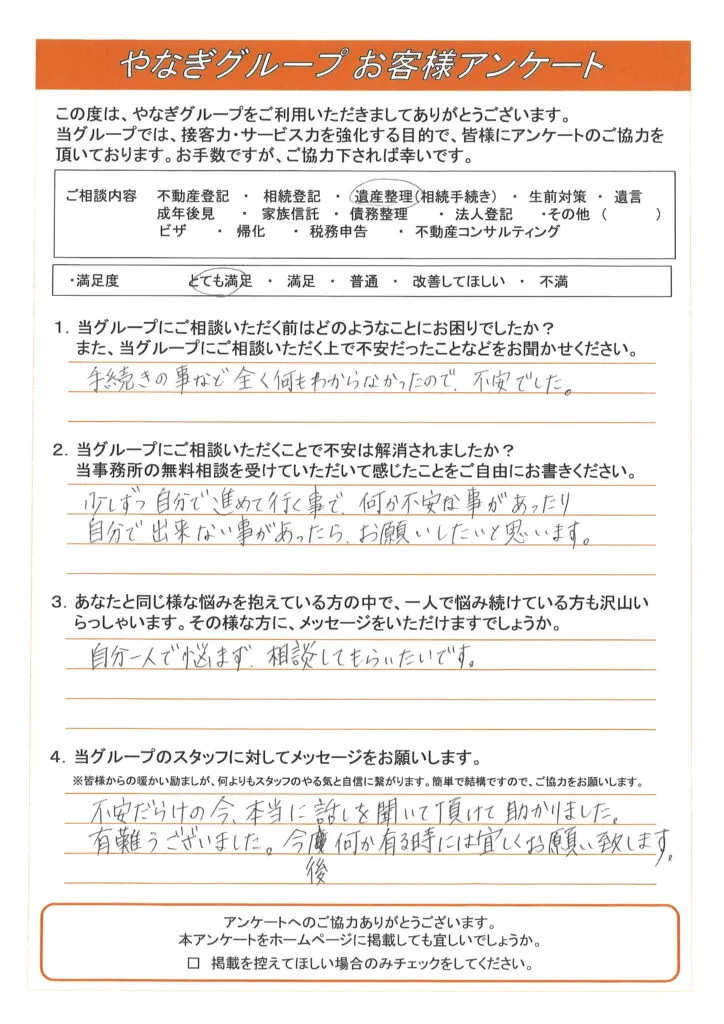 やなぎグループ お客様アンケート
この度は、やなぎグループをご利用いただきましてありがとうございます。
当グループでは、接客力・サービス力を強化する目的で、皆様にアンケートのご協力を
頂いております。お手数ですが、ご協力下されば幸いです。
ご相談内容 不動産登記 ・ 相続登記 ・ 遺産整理(相続手続き) ・ 生前対策 ・ 遺言
成年後見 ・ 家族信託 ・ 債務整理 ・ 法人登記 ・その他 ( )
ビザ ・ 帰化 ・ 税務申告 ・ 不動産コンサルティング
・満足度 とても満足 ・ 満足 ・ 普通 ・ 改善してほしい ・ 不満
1. 当グループにご相談いただく前はどのようなことにお困りでしたか?
また、当グループにご相談いただく上で不安だったことなどをお聞かせください。
手続きの事など全く何もわからなかったので、不安でした。
2. 当グループにご相談いただくことで不安は解消されましたか?
当事務所の無料相談を受けていただいて感じたことをご自由にお書きください。
少しずつ自分で進めて行く事で、何か不安な事があったり
自分で出来ない事があったら、お願いしたいと思います。
3. あなたと同じ様な悩みを抱えている方の中で、一人で悩み続けている方も沢山い
らっしゃいます。その様な方に、メッセージをいただけますでしょうか。
自分一人で悩まず、相談してもらいたいです。
4. 当グループのスタッフに対してメッセージをお願いします。
※皆様からの暖かい励ましが、何よりもスタッフのやる気と自信に繋がります。簡単で結構ですので、ご協力をお願いします。
不安だらけの今、本当に話しを聞いて頂けて助かりました。
有難うございました。今 何か有る時には宜しくお願い致します。
後
アンケートへのご協力ありがとうございます。
本アンケートをホームページに掲載しても宜しいでしょうか。
□ 掲載を控えてほしい場合のみチェックをしてください。